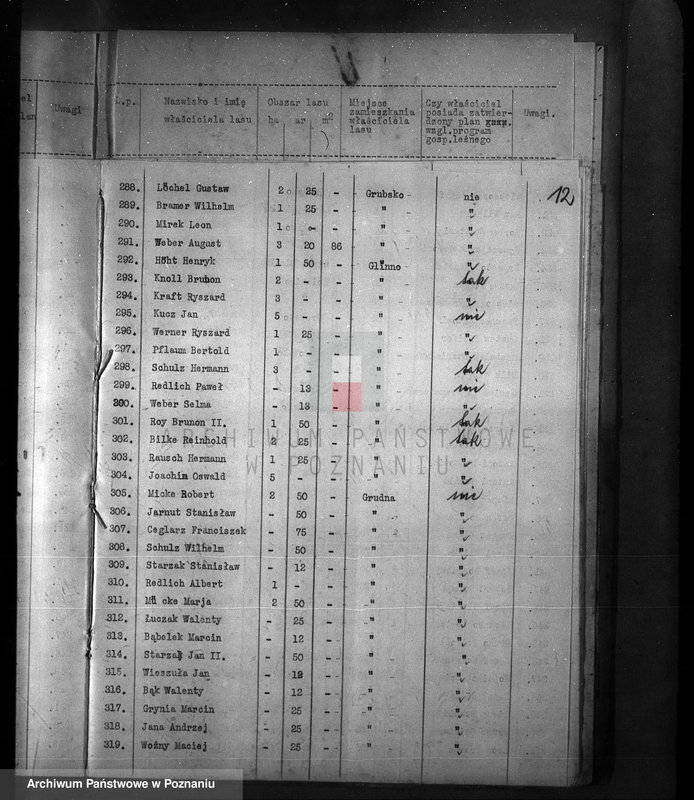 el
lan
Uwagi
L.p. Nazwisko i imię właściciela lasu Obszar lasu ha ar m2 Miejsce zamieszkania właściciela lasu Czy właściciel posiada zatwierdzony plan wzgl.program gosp.leśnego Uwagi.
12
288. Löchel Gustaw 2 25 - Grubsko nie
289. Bramer Wilhelm 1 25 - " "
290. Mirek Leon 1 - - " "
291. Weber August 3 20 86 " "
292. Höht Henryk 1 50 - Glinno "
293. Knoll Bruhon 2 - - " tak
294. Kraft Ryszard 3 - - " "
295. Kucz Jan 5 - - " nie
296. Werner Ryszard 1 25 - " "
297. Pflaum Bertold 1 - - " "
298. Schulz Hermann 3 - - " tak
299. Redlich Paweł - 13 - " nie
300. Weber Selma - 18 - " "
301. Roy Brunon II. 1 50 - " tak
302. Bilke Reinhold 2 25 - " tak
303. Rausch Hermann 1 25 - " "
304. Joachim Oswald 5 - - " "
305. Micke Robert 2 50 - Grudna nie
306. Jarnut Stanisław - 50 - " "
307. Ceglarz Franciszek - 75 - " "
308. Schulz Wilhelm - 50 - " "
309. Starzak Stanisław - 12 - " "
310. Redlich Albert 1 - - " "
311. Mü cke Marja 2 50 - " "
312. Łuczak Walenty - 25 - " "
313. Bąbelek Marcin - 12 - " "
314. Starzak Jan II. - 50 - " "
315. Wieszuła Jan - 12 - " "
316. Bąk Walenty - 12 - " "
317. Grynia Marcin - 25 - " "
318. Jana Andrzej - 25 - " "
319. Woźny Maciej - 25 - " "
ARCHIWUM PAŃSTWOWE
W POZNANIU
Archiwum Państwowe w Poznaniu